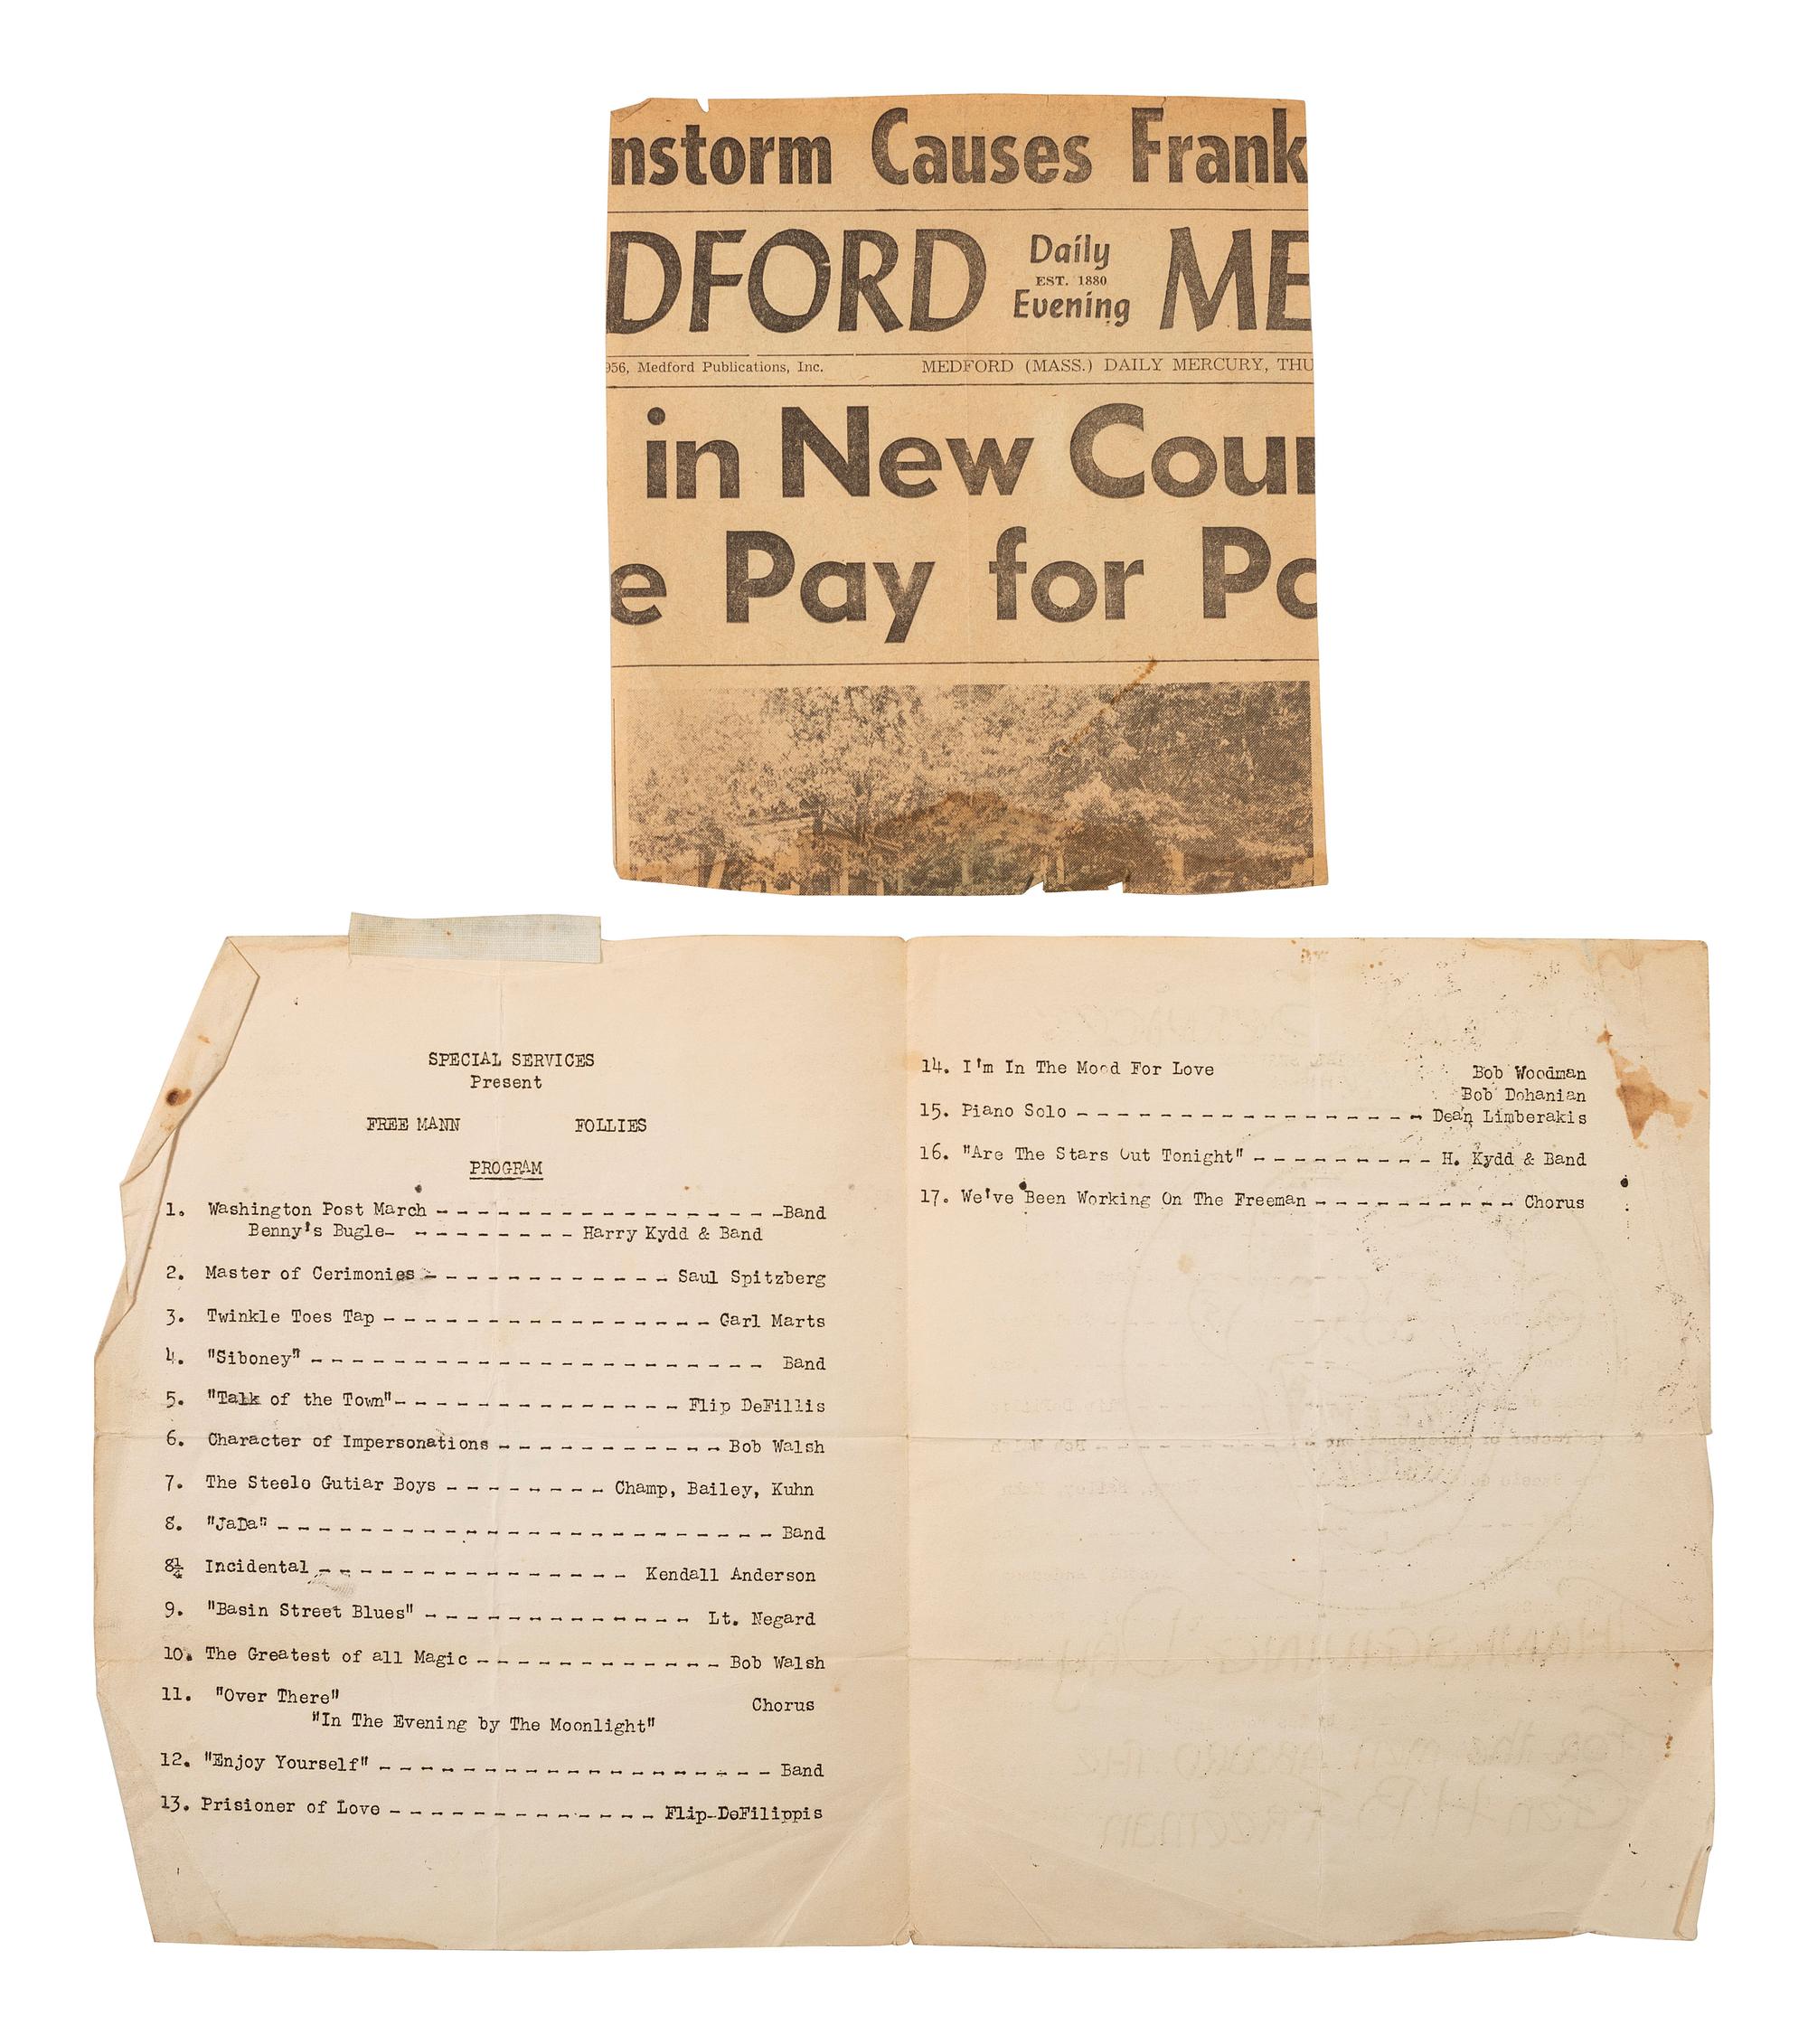 nstorm Causes Frank
DFORD Daily EST. 1880 Evening ME
956, Medford Publications, Inc. MEDFORD (MASS.) DAILY MERCURY, THU
in New Cou
e Pay for Po
SPECIAL SERVICES
Present
FREE MANN FOLLIES
PROGRAM
1. Washington Post March - - - - - - - - - - - - - - - - - -Band
Benny's Bugle- - - - - - - - - Harry Kydd & Band
2. Master of Cerimonies - - - - - - - - - - - - Saul Spitzberg
3. Twinkle Toes Tap - - - - - - - - - - - - - - - - Carl Marts
4. "Siboney" - - - - - - - - - - - - - - - - - - - - - - Band
5. "Talk of the Town"- - - - - - - - - - - - - - Flip DeFillis
6. Character of Impersonations - - - - - - - - - - - Bob Walsh
7. The Steelo Gutiar Boys - - - - - - - - Champ, Bailey, Kuhn
8. "JaDa" - - - - - - - - - - - - - - - - - - - - - - - - Band
8¼ Incidental - - - - - - - - - - - - - - - Kendall Anderson
9. "Basin Street Blues" - - - - - - - - - - - - - Lt. Negard
10. The Greatest of all Magic - - - - - - - - - - - - Bob Walsh
11. "Over There" Chorus
"In The Evening by The Moonlight"
12. "Enjoy Yourself" - - - - - - - - - - - - - - - - - - - Band
13. Prisioner of Love - - - - - - - - - - - - - Flip-DeFilippis
14. I'm In The Mood For Love Bob Woodman
Bob Dohanian
15. Piano Solo - - - - - - - - - - - - - - - - - Dean Limberakis
16. "Are The Stars Out Tonight" - - - - - - - - - H. Kydd & Band
17. We've Been Working On The Freeman - - - - - - - - - - Chorus